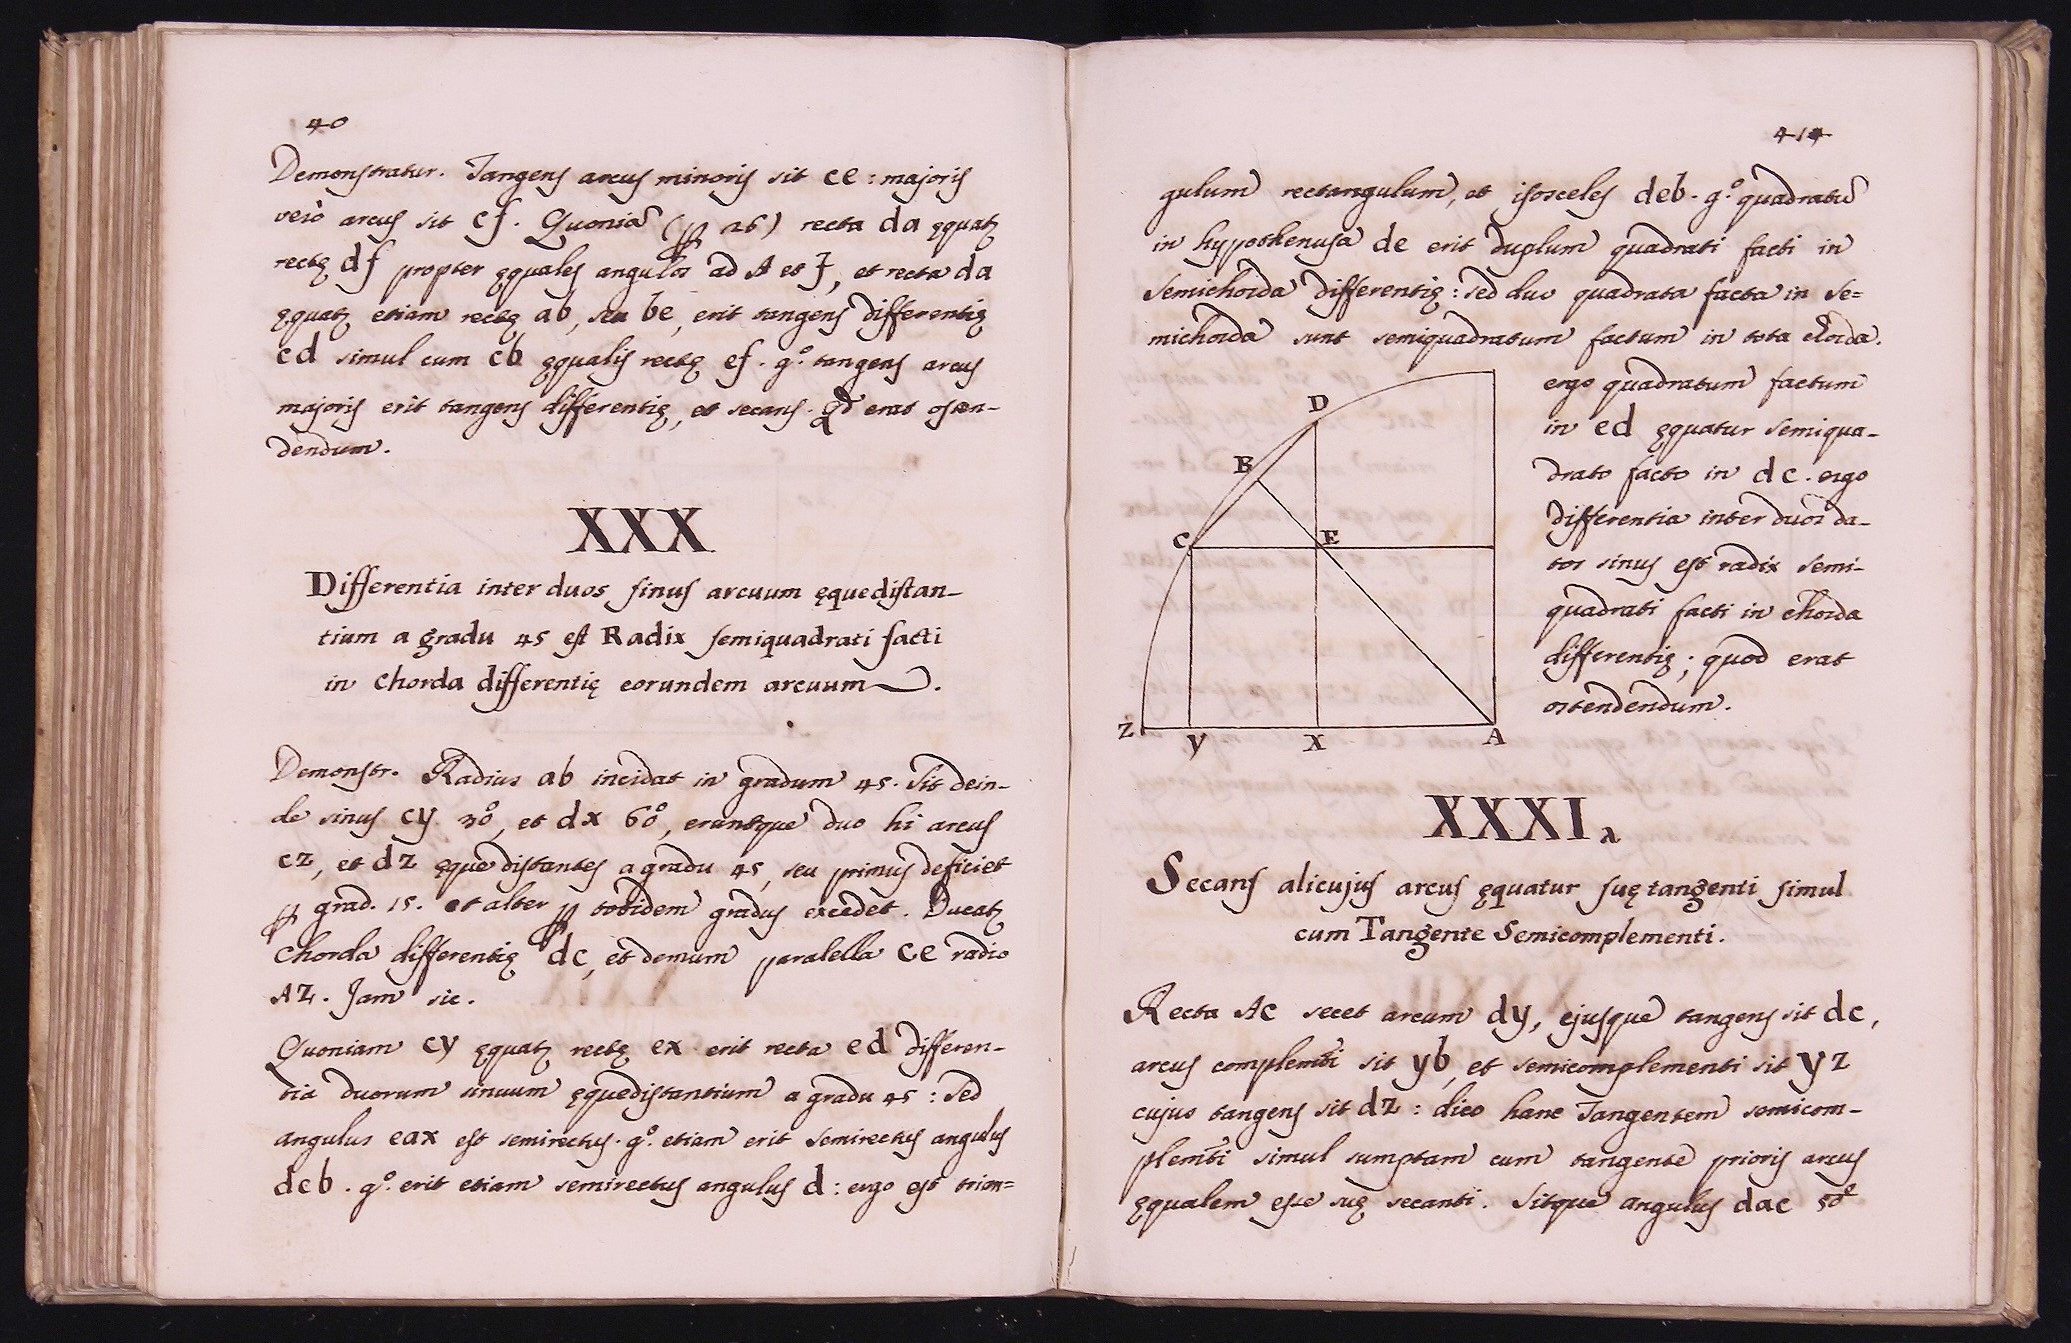 40
Demonstratur. Tangens arcus minoris sit ce : majoris
vero arcus sit cf. Quoniã (ꝑ 26) recta da ęquatꝛ
rectę df propter ęquales angulos ad A et f, et recta da
ęquatꝛ etiam rectę ab, seu be, erit tangens differentię
cd simul cum cb ęqualis rectę ef. g.º tangens arcus
majoris erit tangens differentię, et secans. Qd erat osten-
dendum.
XXX
Differentia inter duos sinus arcuum ęquedistan-
tium a gradu 45 est Radix semiquadrati facti
in chorda differentię eorundem arcuum.
Demonstr. Radius ab incidat in gradum 45. Sit dein-
de sinus cy 30, et dx 60, eruntque duo hi arcus
cz, et dz ęque distantes a gradu 45, seu primus deficiet
ꝑ grad. 15. et alter ꝑ totidem gradus excedet. Ducatꝛ
chorda differentię dc, et demum paralella ce radio
AZ. Jam sic.
Quoniam cy ęquatꝛ rectę ex erit recta ed differen-
tia duorum sinuum ęquedistantium a gradu 45 : sed
angulus eax est semirectus. g.º etiam erit semirectus angulus
deb. g.º erit etiam semirectus angulus d : ergo est trian=
414
gulum rectangulum, et isosceles deb. g.º quadratũ
in hypothenusa de erit duplum quadrati facti in
semichorda differentię : sed duo quadrata facta in se=
michorda sunt semiquadratum factum in tota chorda.
ergo quadratum factum
in ed ęquatur semiqua-
drato facto in dc. ergo
differentia inter duos da-
tos sinus est radix semi-
quadrati facti in chorda
differentię ; quod erat
ostendendum.
D
B
C E
Z y X A
XXXI
Secans alicujus arcus ęquatur suę tangenti simul
cum Tangente Semicomplementi.
Recta Ac secet arcum dy, ejusque tangens sit dc,
arcus complemti sit yb, et semicomplementi sit yz
cujus tangens sit dz : dico hanc Tangentem semicom-
plemti simul sumptam cum tangente prioris arcus
ęqualem esse suę secanti. Sitque angulus dac 50